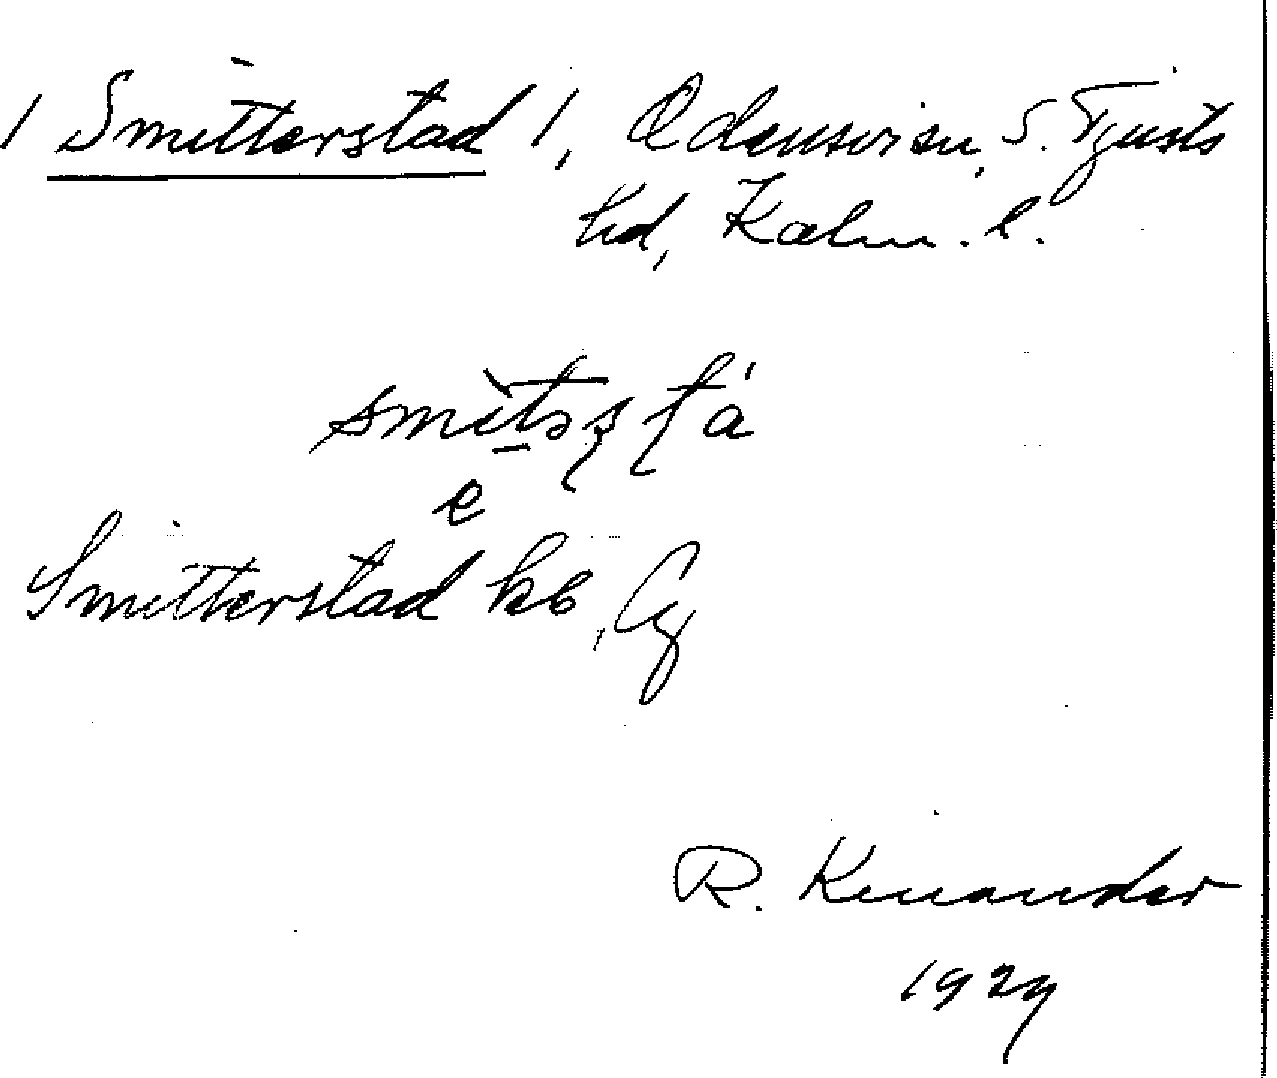 / Smitterstad /, Odensvi sn, S. Tjusts
hd, Kalm. l.
e
Smitterstad kb,
R. Kinander
1929